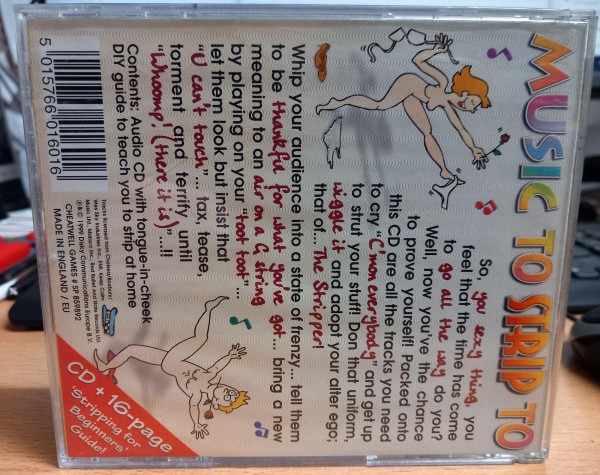 MUSIC TO STRIP TO
So, you sexy thing, you
feel that the time has come
to go all the way do you?
Well, now you've the chance
to prove yourself! Packed onto
this CD are all the tracks you need
to cry "C'mon everybody" and get up
to strut your stuff! Don that uniform,
wiggle it and adopt your alter ego;
that of... The Stripper!
Whip your audience into a state of frenzy... tell them
to be thankful for what you've got... bring a new
meaning to an air on a G string
by playing on your "toot toot"...
let them look but insist that
"U can't touch"... tax, tease,
torment and terrify until
"Whoomp! (there it is)"....!!
Contents: Audio CD with tongue-in-cheek
DIY guide to teach you to strip at home
CHEATWELL GAMES # SP 859892
MADE IN ENGLAND / EU
5 015766 016016
CD + 16-page
'Stripping for
Beginners'
Guide!